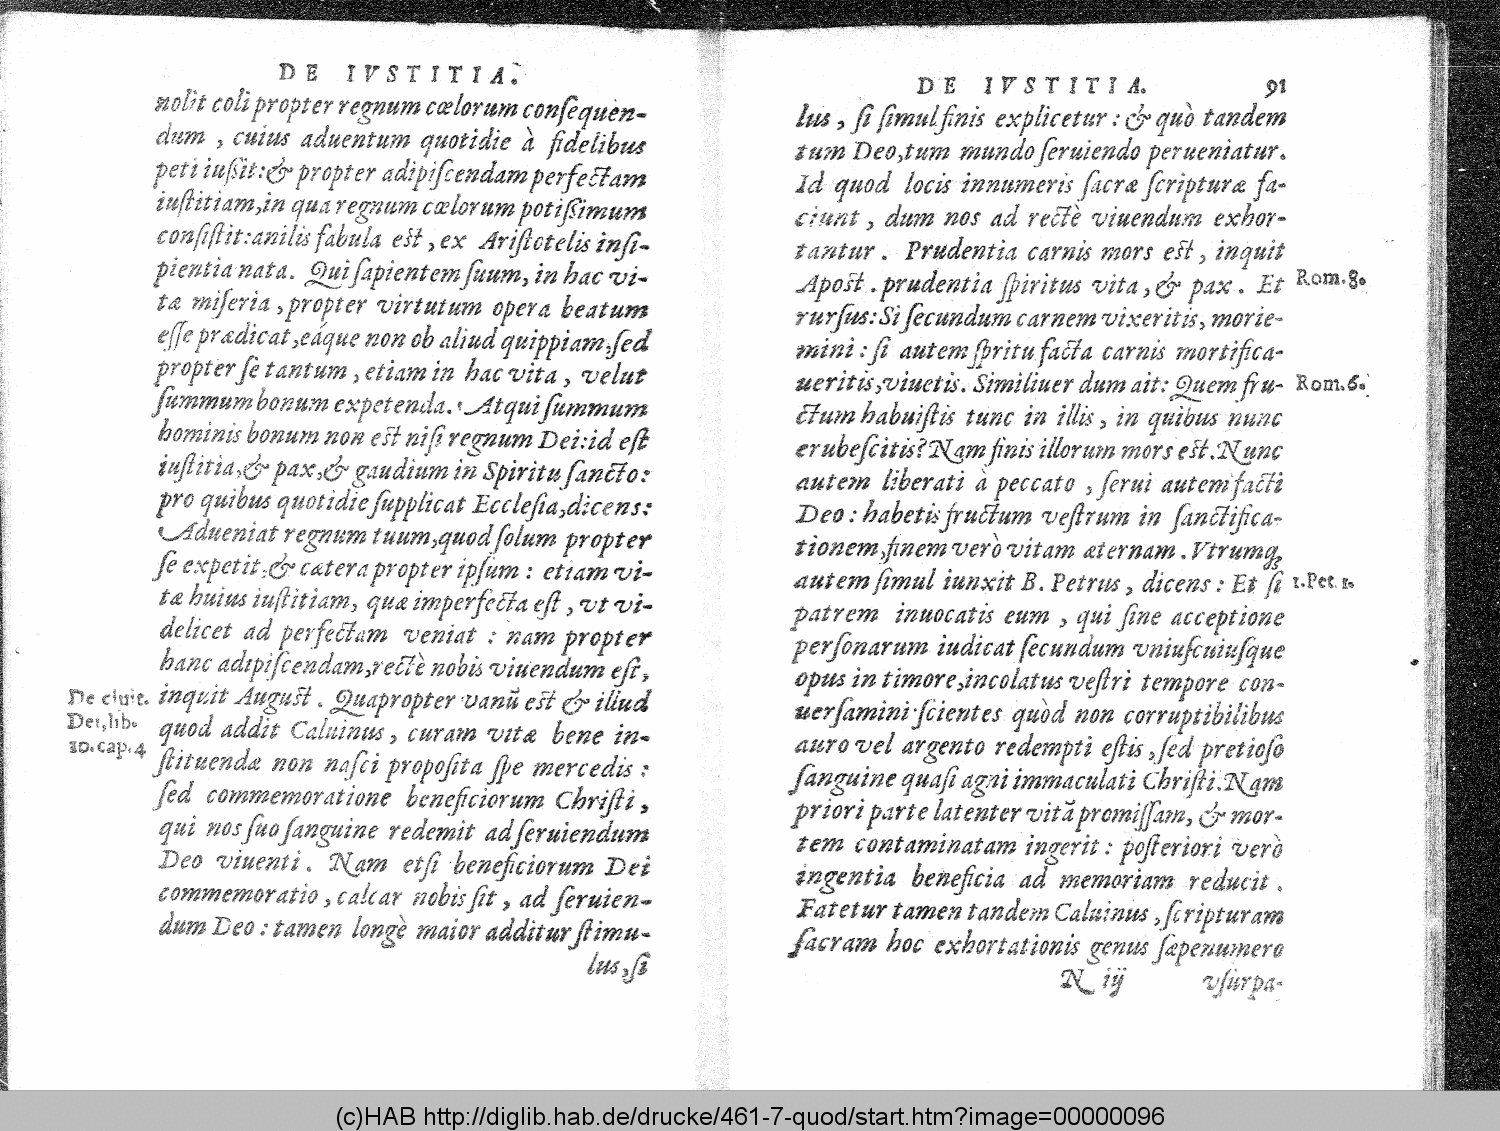 DE IVSTITIA.
nolit coli propter regnum cœlorum conſequen-
dum, cuius aduentum quotidie à fidelibus
peti iuſſit: & propter adipiſcendam perfectam
iuſtitiam, in qua regnum cœlorum potiſſimum
conſiſtit: anilis fabula est, ex Ariſtotelis inſi-
pientia nata. Qui ſapientem ſuum, in hac vi-
tæ miſeria, propter virtutum opera beatum
eſſe prædicat, eáque non ob aliud quippiam, ſed
propter ſe tantum, etiam in hac vita, velut
ſummum bonum expetenda. Atqui ſummum
hominis bonum non est niſi regnum Dei: id eſt
iuſtitia, & pax, & gaudium in Spiritu ſancto:
pro quibus quotidie ſupplicat Eccleſia, dicens:
Adueniat regnum tuum, quod ſolum propter
ſe expetit, & cætera propter ipſum: etiam vi-
tæ huius iuſtitiam, quæ imperfecta eſt, vt vi-
delicet ad perfectam veniat: nam propter
hanc adipiſcendam, rectè nobis viuendum eſt,
De ciuit.
Dei, lib.
10. cap. 4
inquit August. Quapropter vanũ est & illud
quod addit Caluinus, curam vitæ bene in-
ſtituendæ non naſci propoſita ſpe mercedis:
ſed commemoratione beneficiorum Chriſti,
qui nos ſuo ſanguine redemit ad ſeruiendum
Deo viuenti. Nam etſi beneficiorum Dei
commemoratio, calcar nobis ſit, ad ſeruien-
dum Deo: tamen longè maior additur ſtimu-
lus, ſi
DE IVSTITIA. 91
lus, ſi ſimul finis explicetur: & quò tandem
tum Deo, tum mundo ſeruiendo perueniatur.
Id quod locis innumeris ſacræ ſcripturæ fa-
ciunt, dum nos ad rectè viuendum exhor-
tantur. Prudentia carnis mors est, inquit
Apost. prudentia ſpiritus vita, & pax. Et
Rom. 8.
rurſus: Si ſecundum carnem vixeritis, morie-
mini: ſi autem ſpritu facta carnis mortifica-
ueritis, viuetis. Similiuer dum ait: Quem fru-
Rom. 6.
ctum habuiſtis tunc in illis, in quibus nunc
erubeſcitis? Nam finis illorum mors est. Nunc
autem liberati à peccato, ſerui autem facti
Deo: habetis fructum veſtrum in ſanctifica-
tionem, finem verò vitam æternam. Vtrumq;
autem ſimul iunxit B. Petrus, dicens: Et ſi
1. Pet. 1.
patrem inuocatis eum, qui ſine acceptione
perſonarum iudicat ſecundum vniuſcuiuſque
opus in timore, incolatus veſtri tempore con-
uerſamini ſcientes quòd non corruptibilibus
auro vel argento redempti eſtis, ſed pretioſo
ſanguine quaſi agni immaculati Chriſti. Nam
priori parte latenter vitã promiſſam, & mor-
tem contaminatam ingerit: poſteriori verò
ingentia beneficia ad memoriam reducit.
Fatetur tamen tandem Caluinus, ſcripturam
ſacram hoc exhortationis genus ſæpenumero
N iij
vſurpa-
(c)HAB http://diglib.hab.de/drucke/461-7-quod/start.htm?image=00000096